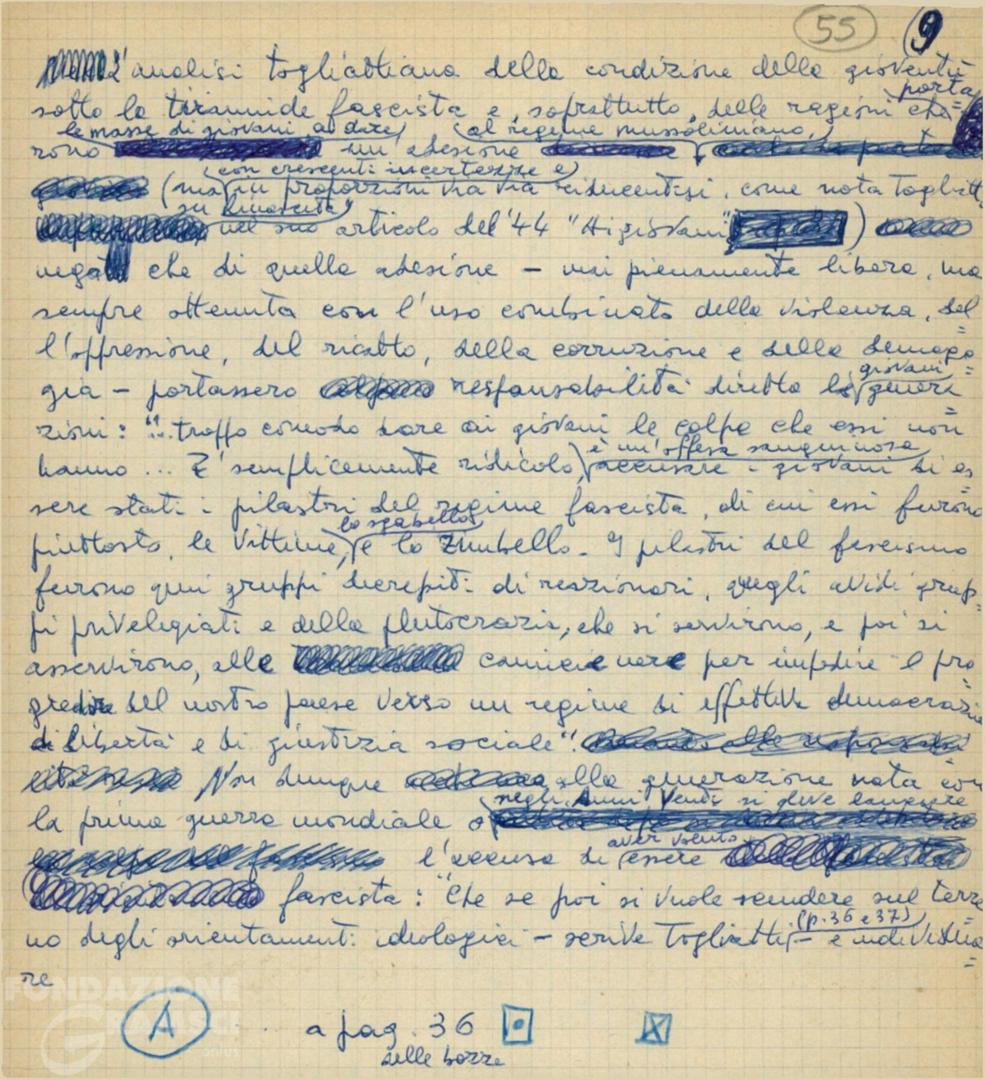 55 9
L'analisi togliattiana della condizione della gioventù
sotto la tirannide fascista e, soprattutto, delle ragioni che porta=
rono le masse di giovani a dare un'adesione al regime mussoliniano,
(ma con crescenti incertezze e in proporzioni via via riducentisi, come nota Togliatti
su "Rinascita" nel suo articolo del '44 "Ai giovani")
nega che di quella adesione – mai pienamente libera, ma
sempre ottenuta con l'uso combinato della violenza, del=
l'oppressione, del ricatto, della corruzione e della demago=
gia – portassero responsabilità diretta le giovani genera=
zioni: "... troppo comodo dare ai giovani le colpe che essi non
hanno ... E' semplicemente ridicolo, è un'offesa sanguinosa accusare i giovani di es=
sere stati i pilastri del regime fascista, di cui essi furono
piuttosto, le vittime, lo sgabello e lo zimbello. I pilastri del fascismo
furono quei gruppi decrepiti di reazionari, quegli avidi grup=
pi privelegiati e della plutocrazia, che si servirono, e poi si
asservirono, alle camicie nere per impedire il pro=
gredire del nostro paese verso un regime di effettiva democrazia
di libertà e di giustizia sociale".
Non dunque alla generazione nata con
la prima guerra mondiale o negli Anni Venti si deve lanciare
l'accusa di aver voluto essere
fascista: "Che se poi si vuole scendere sul terre=
no degli orientamenti ideologici – scrive Togliatti (p. 36 e 37) – e individua=
re
A a pag. 36
delle bozze
FONDAZIONE
GRAMSCI
onlus